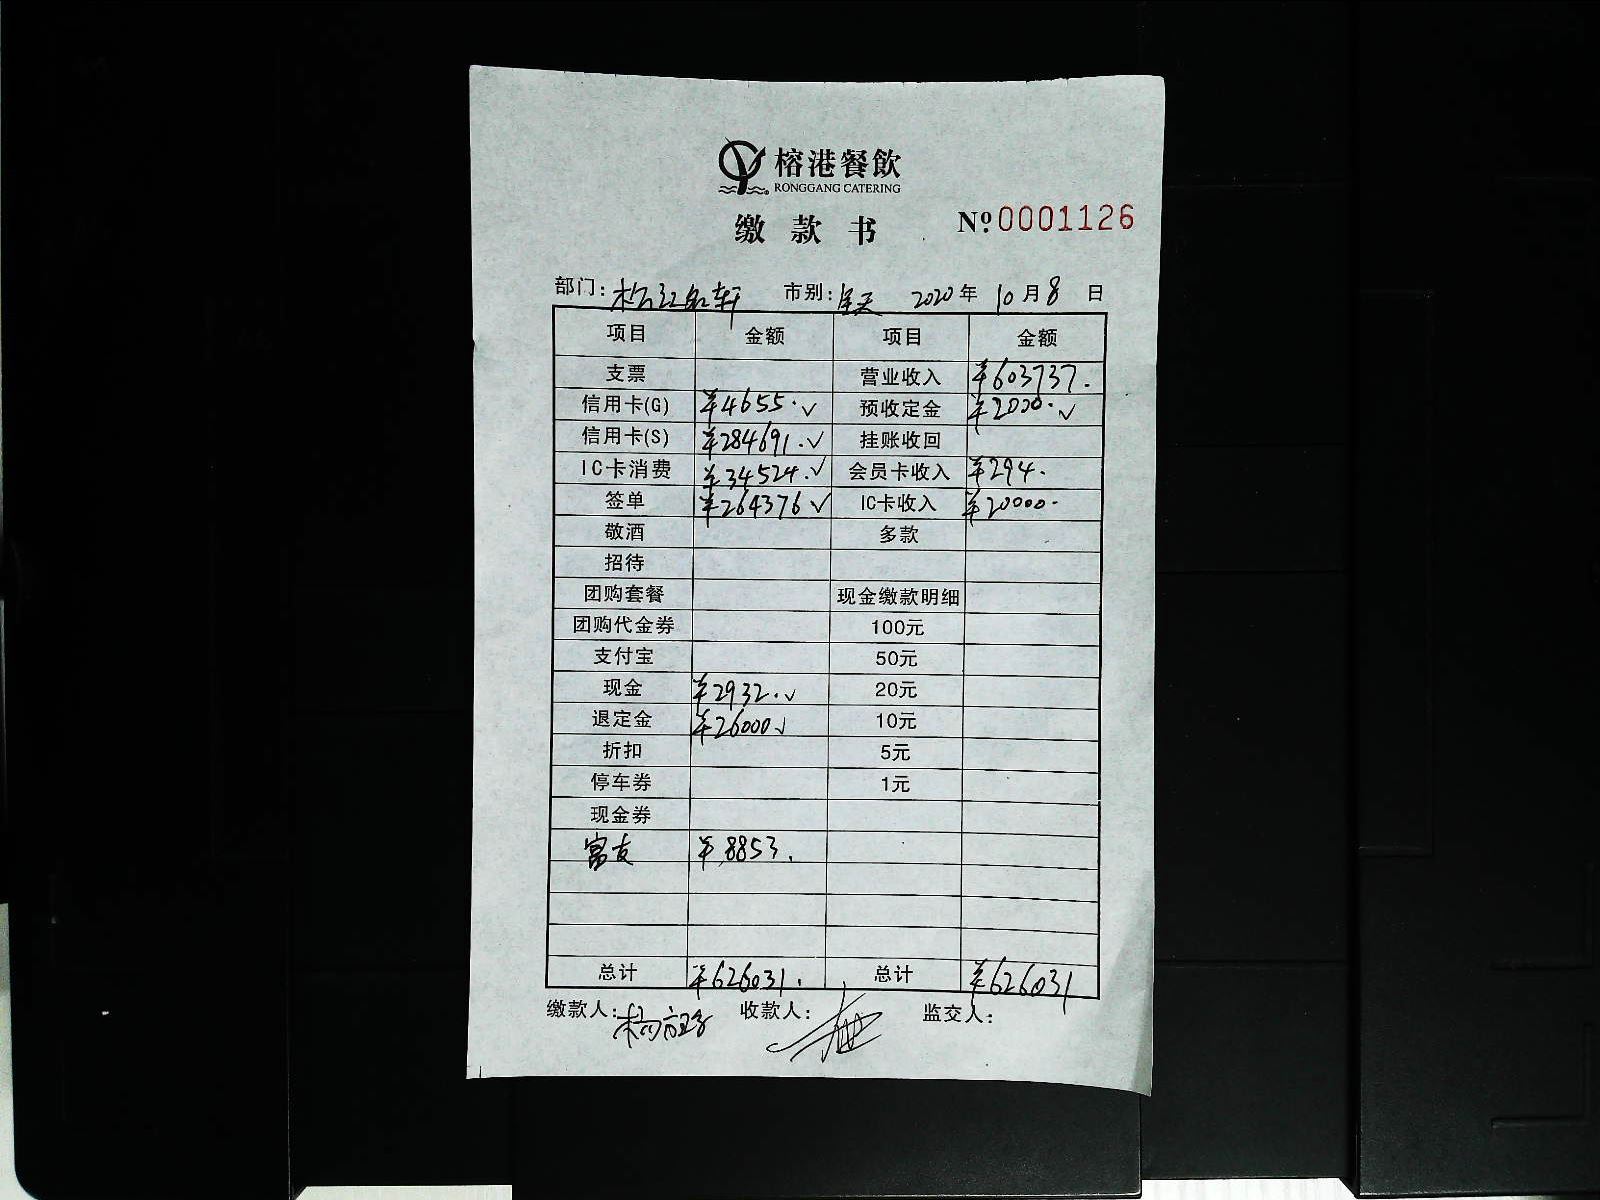 榕港餐飲
RONGGANG CATERING
缴款书 № 0001126
部门: 松江名轩 市别: 全天 2020年 10月 8日
项目 金额 项目 金额
支票 营业收入 ¥603737.
信用卡(G) ¥4655. ✓ 预收定金 ¥2000. ✓
信用卡(S) ¥284691. ✓ 挂账收回
IC卡消费 ¥34524. ✓ 会员卡收入 ¥294.
签单 ¥264376 ✓ IC卡收入 ¥20000.
敬酒 多款
招待
团购套餐 现金缴款明细
团购代金券 100元
支付宝 50元
现金 ¥2932. ✓ 20元
退定金 ¥26000 ✓ 10元
折扣 5元
停车券 1元
现金券
富友 ¥8853.
总计 ¥626031. 总计 ¥626031
缴款人: 收款人: 监交人: